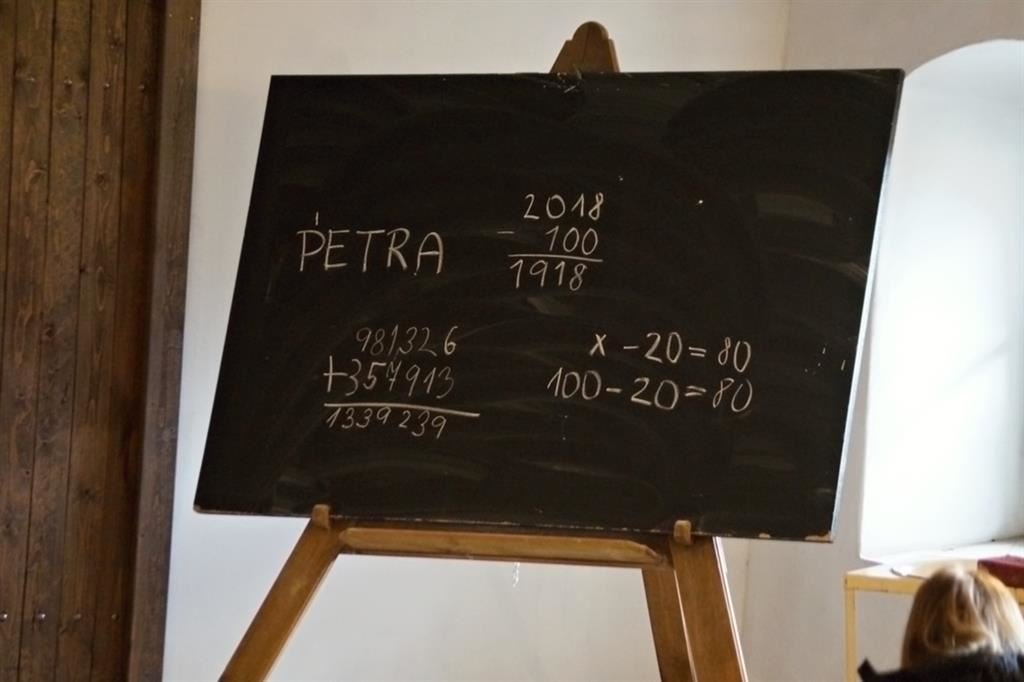 PETRA
2018
- 100
1918
981326
+357913
1339239
x - 20 = 80
100 - 20 = 80